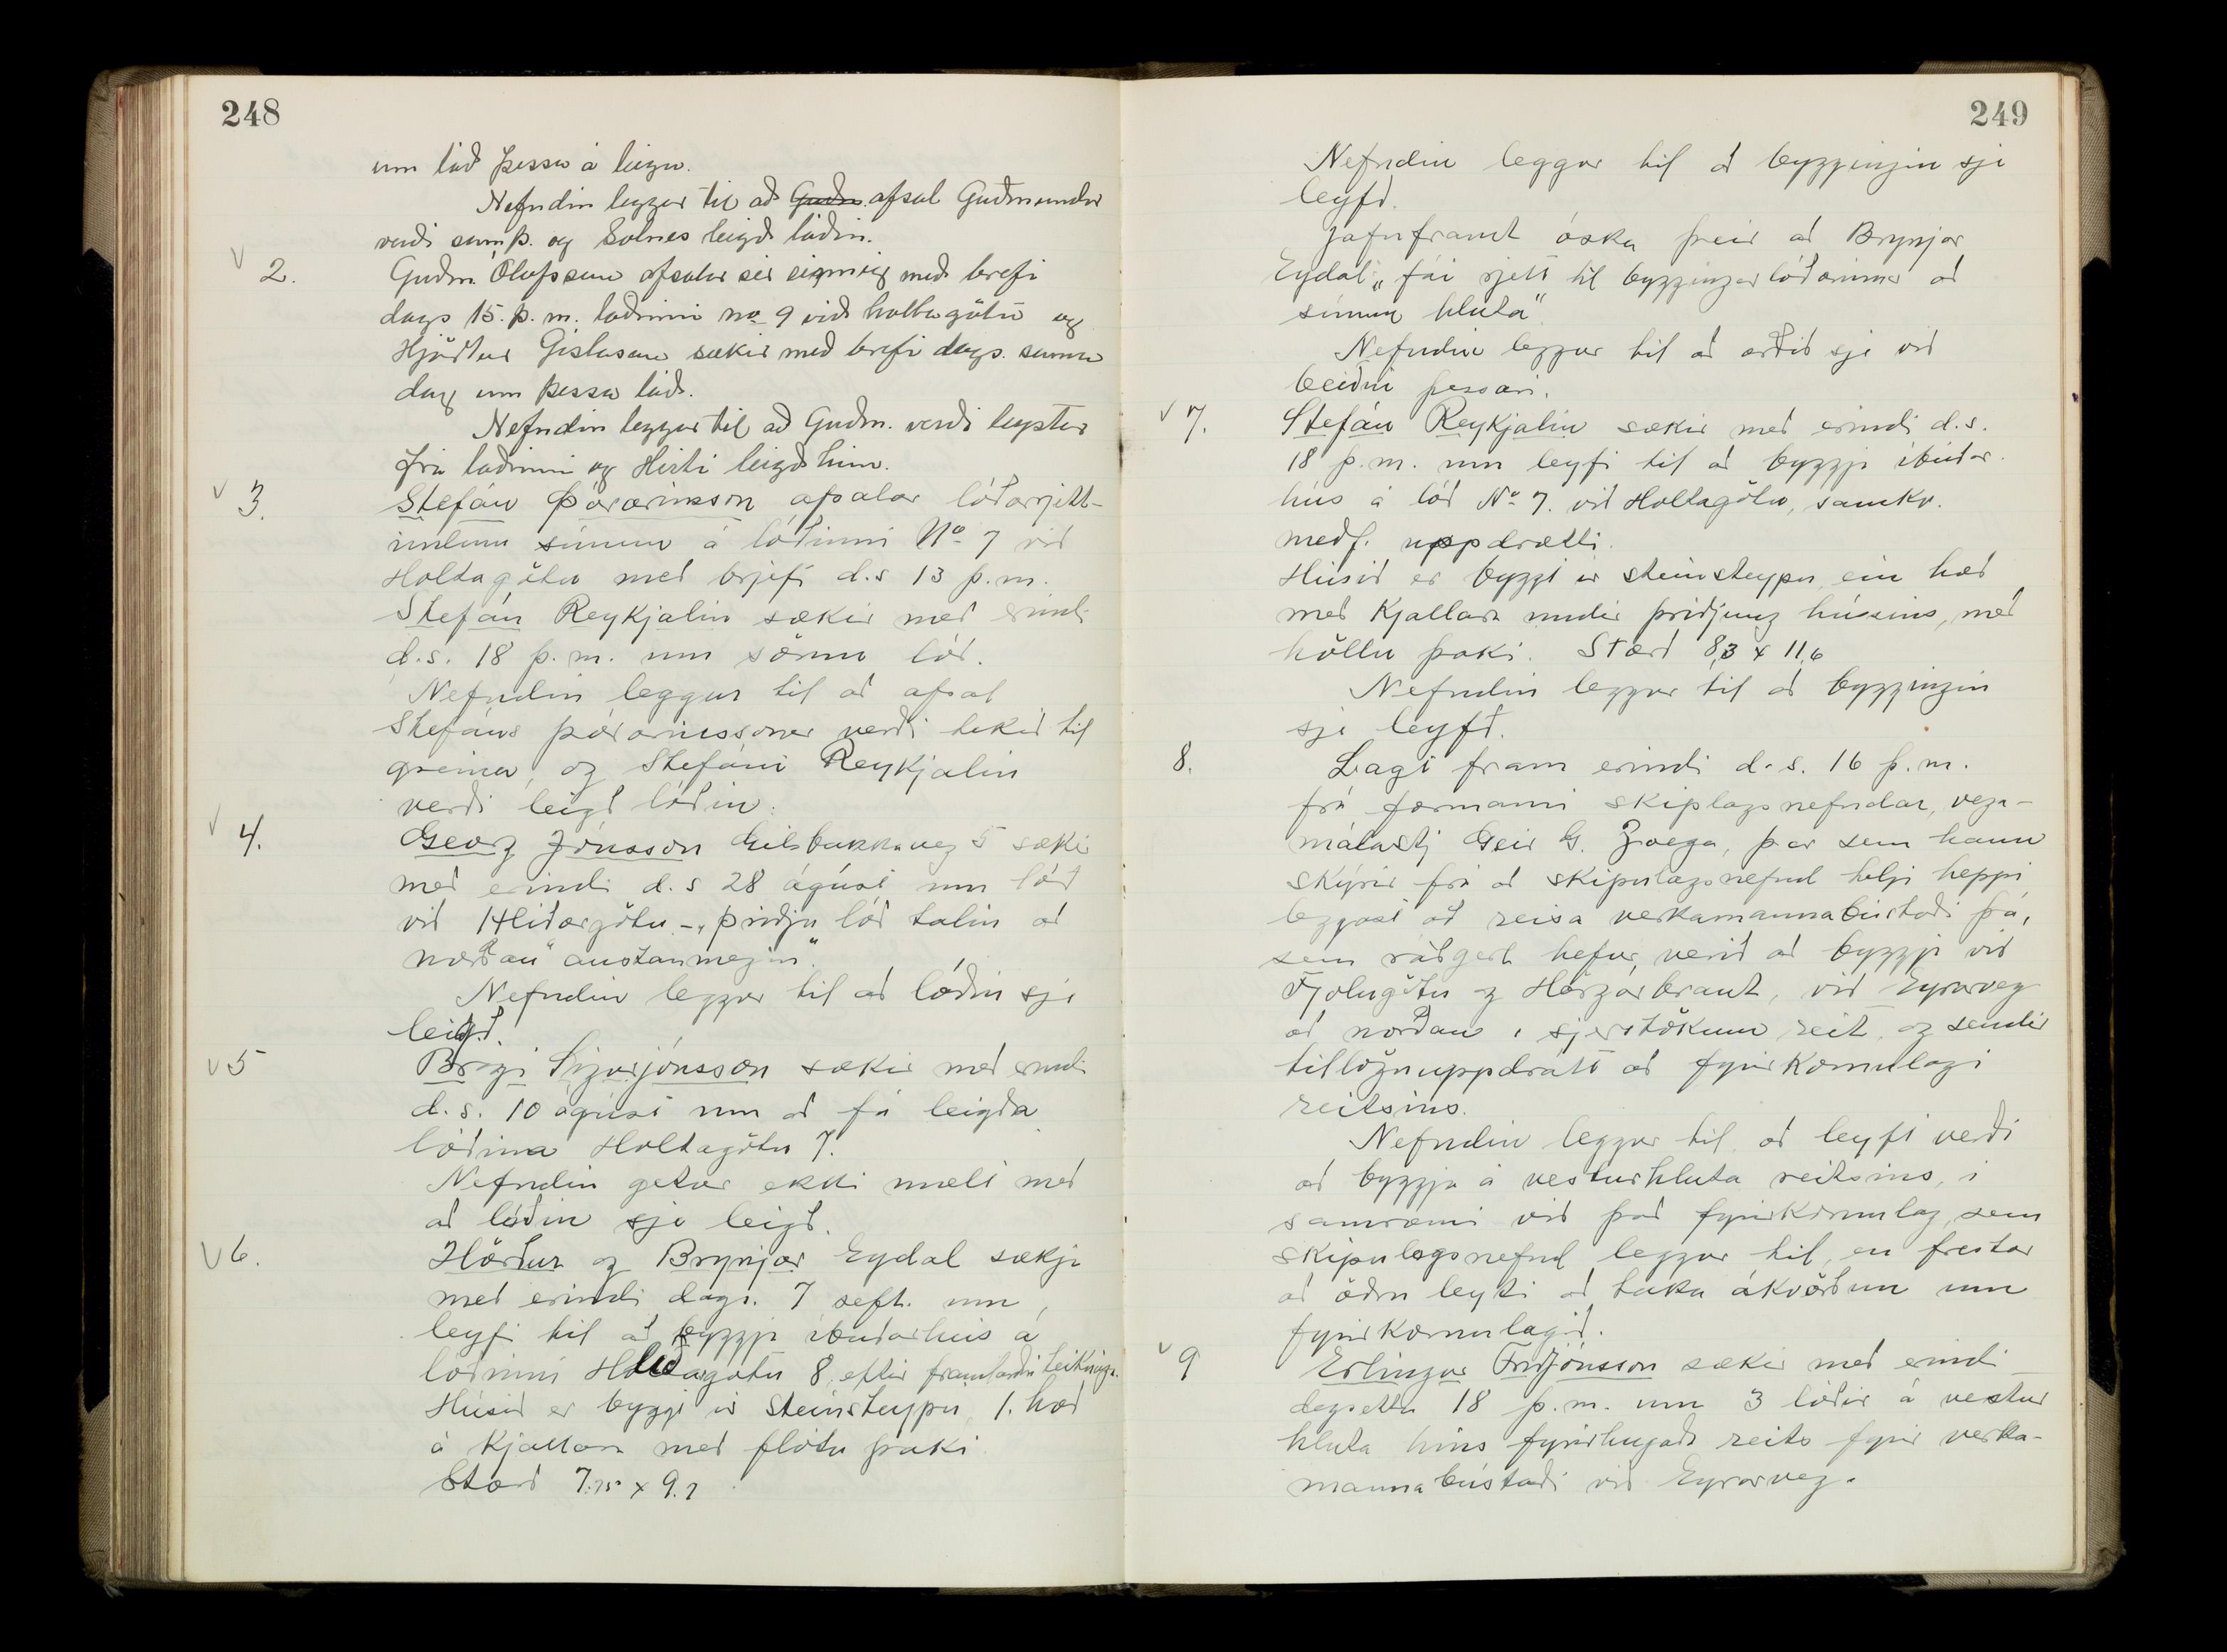 248
um lóð þessa á leigu.
Nefndin leggur til að Guðm. afsal Guðmundar
verði samþ. og Sólnes leigð lóðin.
v 2. Guðm. Ólafsson afsalar sér einnig með brefi
dags 15. þ.m. lóðinni no 9 við Holtagötu og
Hjörtur Gíslason sækir með brefi dags. sama
dag um þessa lóð.
Nefndin leggur til að Guðm. verði leystur
frá lóðinni og Hirti leigð hún.
v 3. Stefán Þórarinsson afsalar lóðarrjett-
indum sínum á lóðinni No 7 við
Holtagötu með brjefi d.s 13 þ.m.
Stefán Reykjalin sækir með erindi
d.s. 18 þ.m. um sömu lóð.
Nefndin leggur til að afsal
Stefáns þórarinssonar verði tekið til
greina, og Stefáni Reykjalin
verði leigð lóðin.
v 4. Georg Jónsson Gilsbakkaveg 5 sækir
með erindi d.s 28 ágúst um lóð
við Hlíðargötu - „þriðju lóð talin að
norðan" austanmegin".
Nefndin leggur til að lóðin sje
leigð.
v 5 Bragi Sigurjónsson sækir með erindi
d.s. 10 ágúst um að fá leigða
lóðina Holtagötu 7.
Nefndin getur ekki mælt með
að lóðin sje leigð.
v 6. Hörður og Brynjar Eydal sækja
með erindi dags. 7 sept. um
leyfi til að byggja íbúðarhús á
lóðinni Hlíðargötu 8, eftir framlagðri teikningu.
Húsið er byggt úr steinsteypu, 1. hæð
á kjallara með flötu þaki
Stærð 7.75 x 9.7
249
Nefndin leggur til að byggingin sje
leyfð.
Jafnframt óska þeir að Brynjar
Eydal „fái rjett til byggingarlóðarinnar að
sínum hluta"
Nefndin leggur til að orðið sje við
beiðni þessari.
v 7. Stefán Reykjalin sækir með erindi d.s.
18 þ.m. um leyfi til að byggja íbúðar-
hús á lóð No 7. við Holtagötu, samkv.
meðf. uppdrætti.
Húsið er byggt úr steinsteypu, ein hæð
með kjallara undir þriðjung hússins, með
höllu þaki. Stærð 8,3 x 11,6
Nefndin leggur til að byggingin
sje leyfð.
8. Lagt fram erindi d.s. 16 þ.m.
frá formanni skiplagsnefndar, vega-
málastj Geir G. Zoega, þar sem hann
skýrir frá að skipulagsnefnd telji heppi
legast að reisa verkamannabústaði þá,
sem ráðgert hefur verið að byggja við
Fjólugötu og Hörgárbraut, við Eyrarveg
að norðan í sjerstökum reit, og sendir
tillöguuppdrátt að fyrirkomulagi
reitsins.
Nefndin leggur til, að leyft verði
að byggja á vesturhluta reitsins, í
samræmi við það fyrirkomulag, sem
skipulagsnefnd leggur til, en frestar
að öðru leyti að taka ákvörðun um
fyrirkomulagið.
v 9 Erlingur Friðjónsson sækir með erindi
dagsettu 18 þ.m. um 3 lóðir á vestur
hluta hins fyrirhugaða reits fyrir verka-
mannabústaði við Eyrarveg.